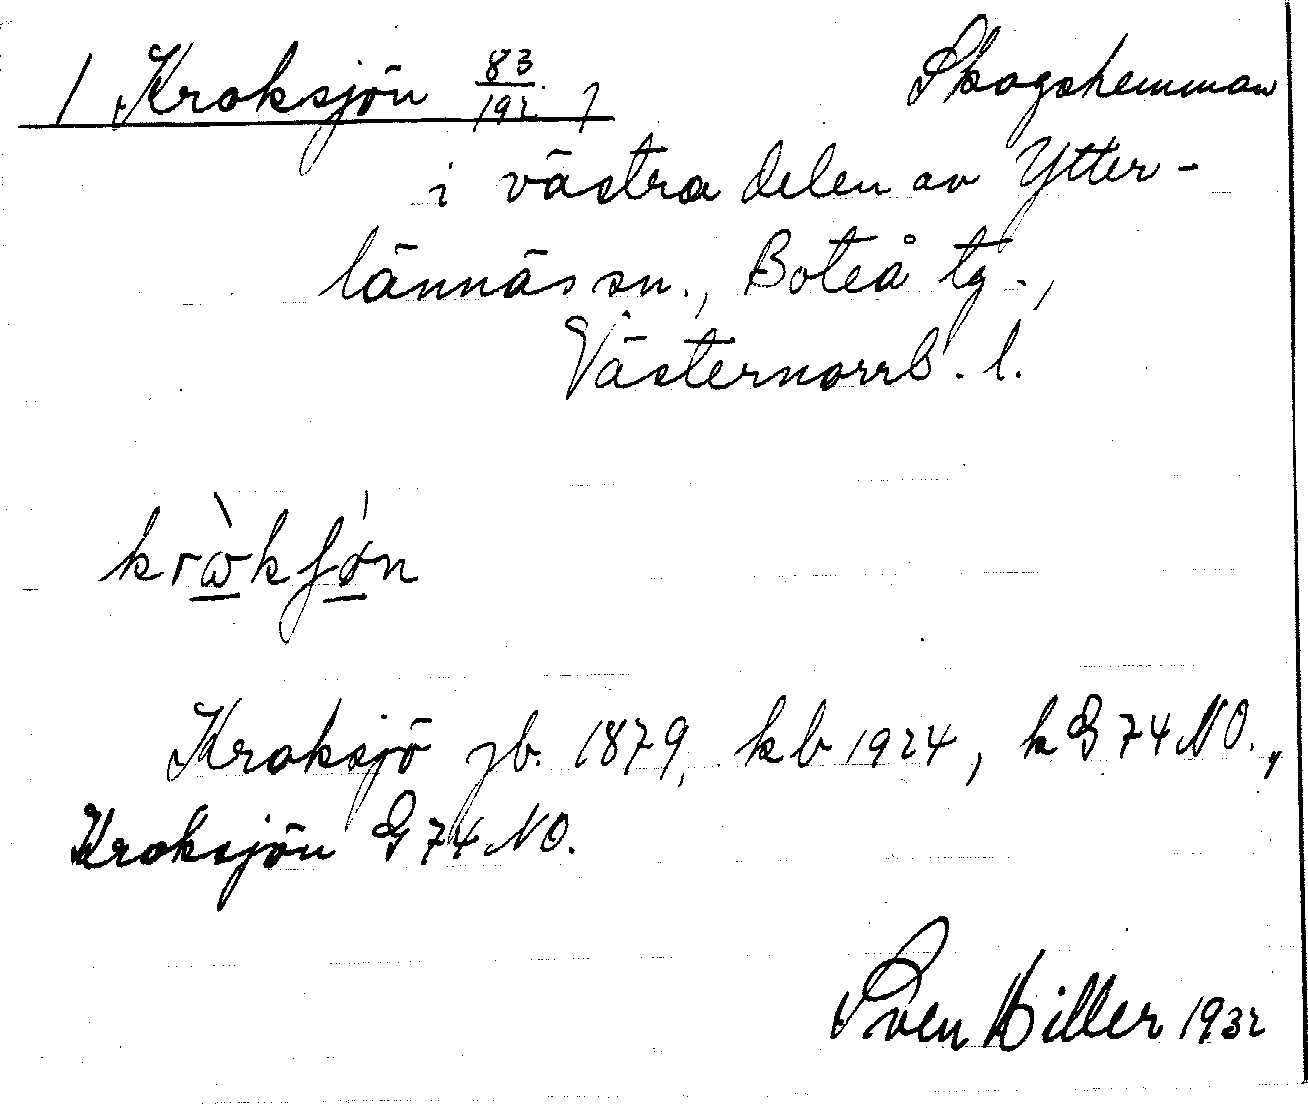 / Kroksjön 83/192. / Skogshemman
i västra delen av Ytter-
lännäs sn., Boteå tg.,
Västernorrl. l.
krωkʃøn
Kroksjö jb. 1879, kb 1924, k G 74 NO.,
Kroksjön G 74 NO.
Sven Hiller 1932